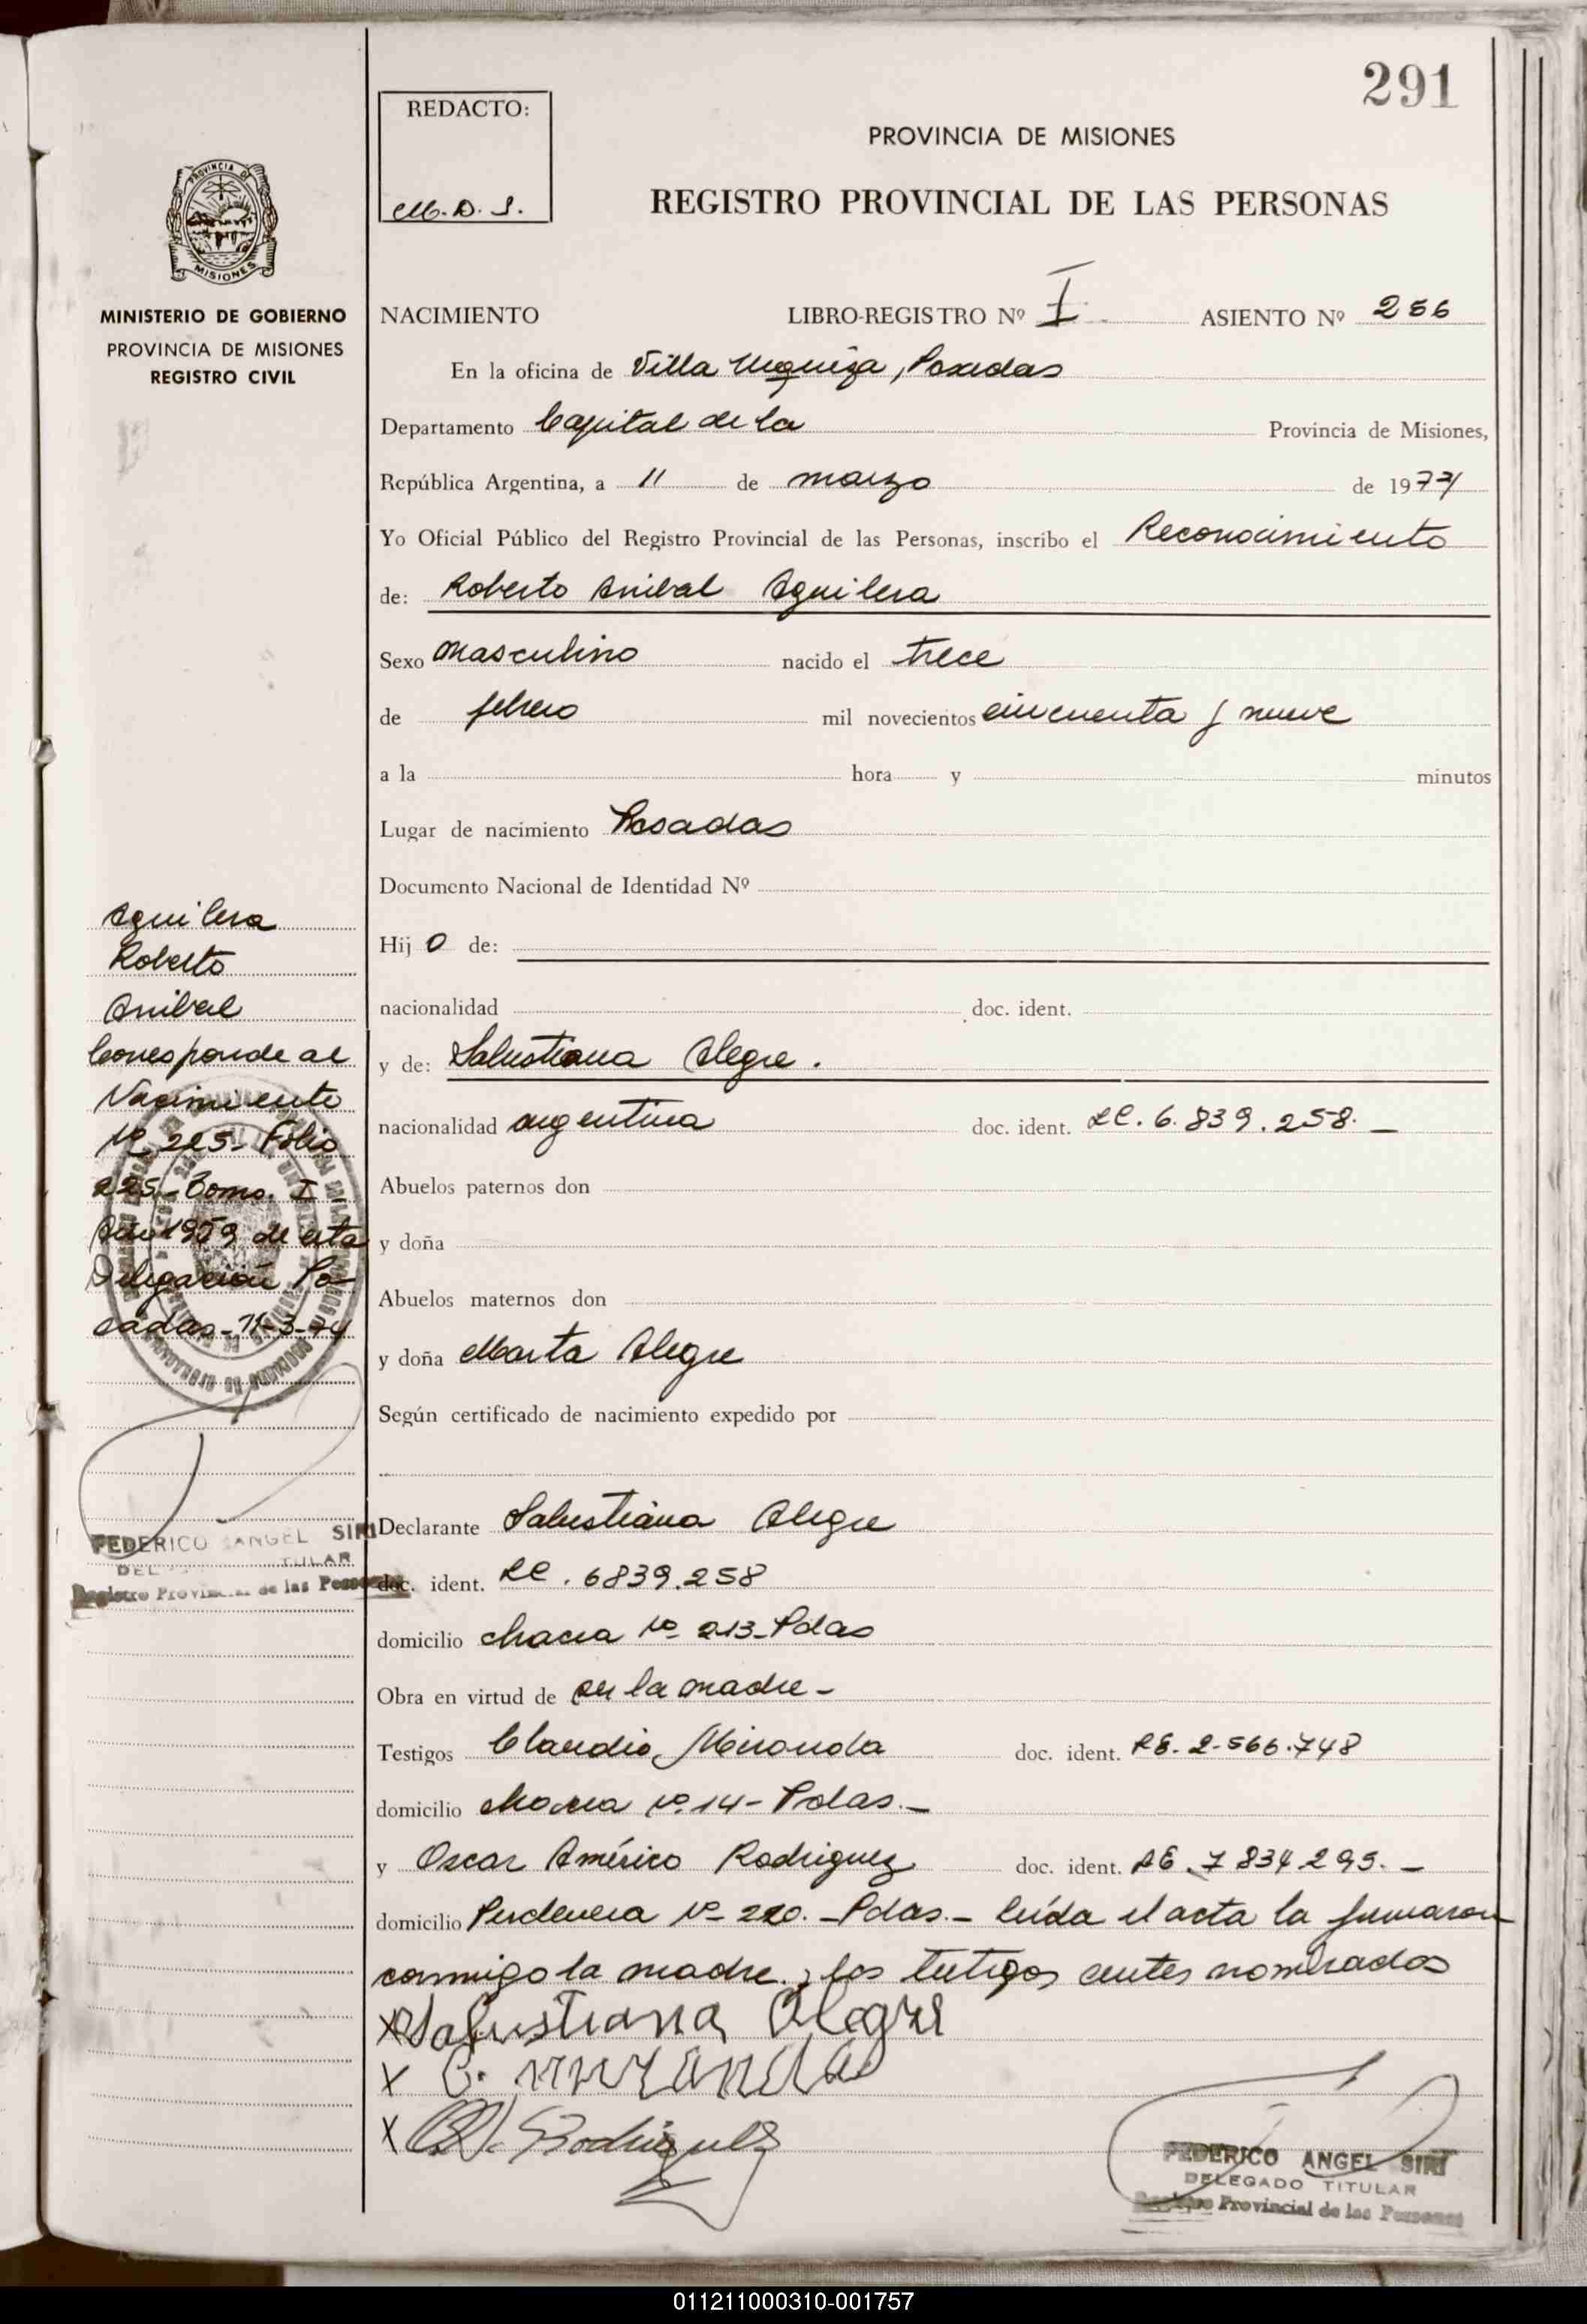 291
REDACTO:
M. D. S.
PROVINCIA DE MISIONES
REGISTRO PROVINCIAL DE LAS PERSONAS
PROVINCIA DE
MISIONES
MINISTERIO DE GOBIERNO
PROVINCIA DE MISIONES
REGISTRO CIVIL
NACIMIENTO LIBRO-REGISTRO Nº I ASIENTO Nº 256
En la oficina de Villa Urquiza, Posadas
Departamento Capital de la Provincia de Misiones,
República Argentina, a 11 de marzo de 1974
Yo Oficial Público del Registro Provincial de las Personas, inscribo el Reconocimiento
de: Roberto Anibal Aguilera
Sexo masculino nacido el trece
de febrero mil novecientos cincuenta y nueve
a la hora y minutos
Lugar de nacimiento Posadas
Documento Nacional de Identidad Nº
Hij o de:
nacionalidad doc. ident.
y de: Salustiana Alegre.
nacionalidad argentina doc. ident. LC. 6.839.258.—
Abuelos paternos don
y doña
Abuelos maternos don
y doña Marta Alegre
Según certificado de nacimiento expedido por
Declarante Salustiana Alegre
doc. ident. LC. 6839.258
domicilio chacra Nº 213-Pdas
Obra en virtud de ser la madre-
Testigos Claudio Miranda doc. ident. 2.566.748
domicilio chacra Nº 14- Pdas.-
y Oscar Américo Rodriguez doc. ident. 7834295.-
domicilio Nº 220.-Pdas.- leída el acta la firmaron
conmigo la madre y los testigos antes nombrados
X Salustiana Alegre
X C. Miranda
X Rodriguez
FEDERICO ANGEL SIRI
DELEGADO TITULAR
Registro Provincial de las Personas
Aguilera
Roberto
Anibal
Corresponde al
Nacimiento
Nº 225- Folio
225- Tomo. I-
Año 1959 de esta
Delegación Po-
sadas-11-3-74
FEDERICO ANGEL SIRI
TULAR
Registro Provincial de las Personas
011211000310-001757